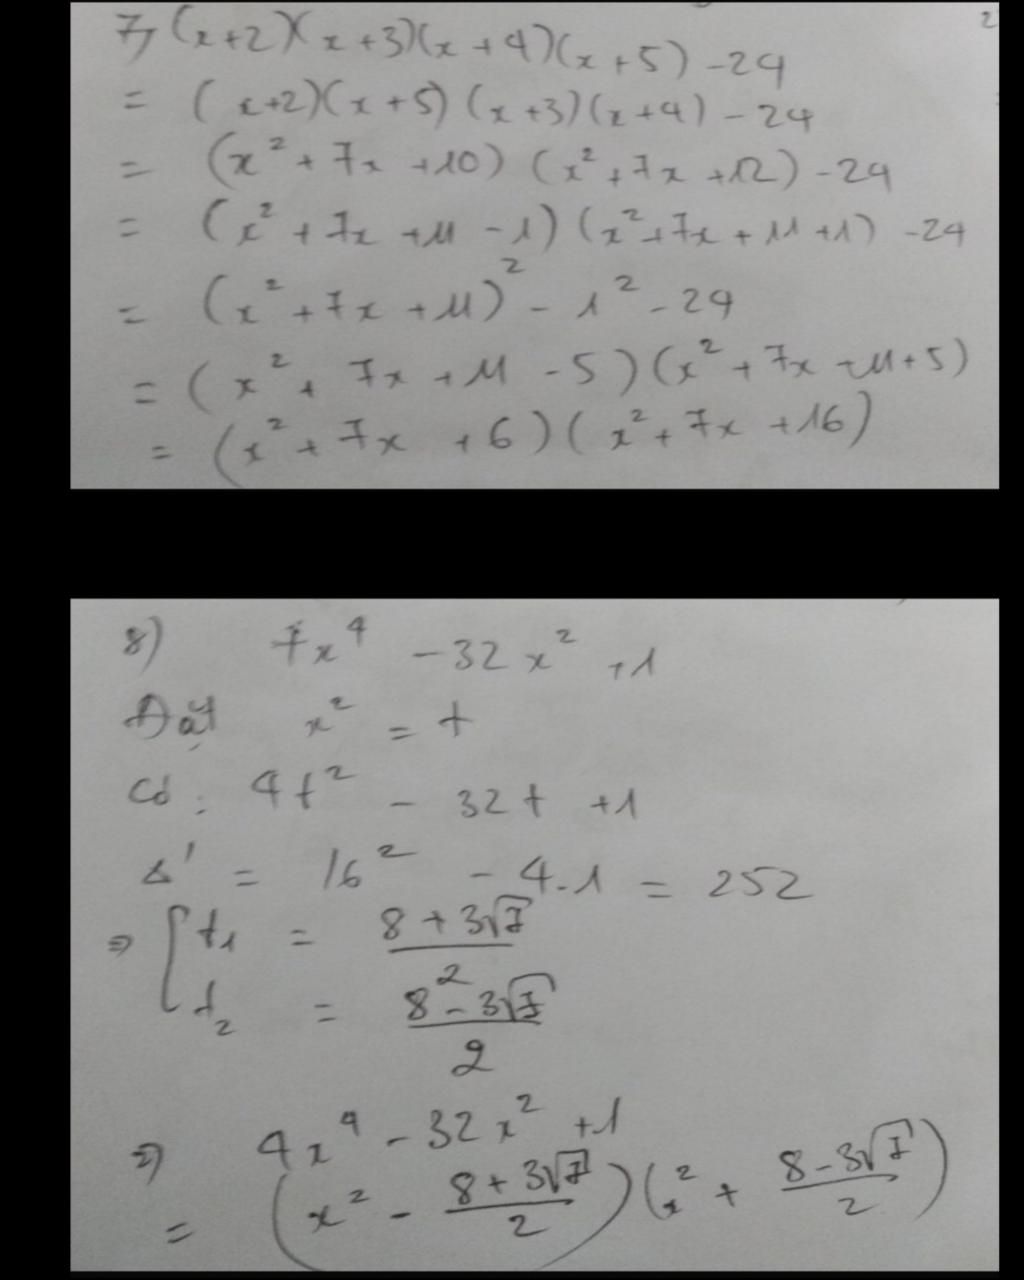 7, (x+2)(x+3)(x+4)(x+5) - 24
= (x+2)(x+5)(x+3)(x+4) - 24
= (x² + 7x + 10) (x² + 7x + 12) - 24
= (x² + 7x + 11 - 1) (x² + 7x + 11 + 1) - 24
= (x² + 7x + 11)² - 1² - 24
= (x² + 7x + 11 - 5) (x² + 7x + 11 + 5)
= (x² + 7x + 6) (x² + 7x + 16)
8) 7x⁴ - 32x² + 1
Đặt x² = t
Có: 4t² - 32t + 1
Δ' = 16² - 4.1 = 252
⇒ [ t₁ = (8 + 3√7)/2
t₂ = (8 - 3√7)/2
⇒ 4x⁴ - 32x² + 1
= (x² - (8 + 3√7)/2) (x² + (8 - 3√7)/2)